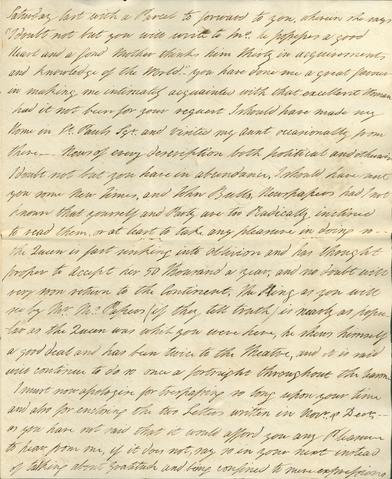 Saturday last with a Parcel to forward to you, wherein she says
"I doubt not but you will write to me, he possesses a good
Heart and a fond Mother thinks him thirty in acquirements
and knowledge of the World." you have done me a great favour
in making me intimately acquainted with that excellent Woman
had it not been for your request I should have made my
Home in St. Pauls and visited my aunt occasionally from
there — News of every description both political and otherwise
I doubt not but you have in abundance, I should have sent
you some New Times, and John Bulls, Newspapers had I not
known that yourself and Party are too Radically inclined
to read them, or at least to take any pleasure in doing so —
the Queen is fast sinking into oblivion and has thought
proper to accept her 50 thousand a year, and no doubt will
very soon return to the Continent, The King as you will
see by the Papers (if they tell truth) is nearly as popu-
lar as the Queen was whilst you were here, he shews himself
a good deal and has been twice to the Theatre, and it is said
will continue to do so once a fortnight throughout the season
I must now apologise for trespassing so long upon your time
and also for enclosing the two Letters written in Novr. & Decr. —
as you have not said that it would afford you any Pleasure
to hear from me, if it does not, say so in your next instead
of talking about Gratitude and being confined to mere expressions